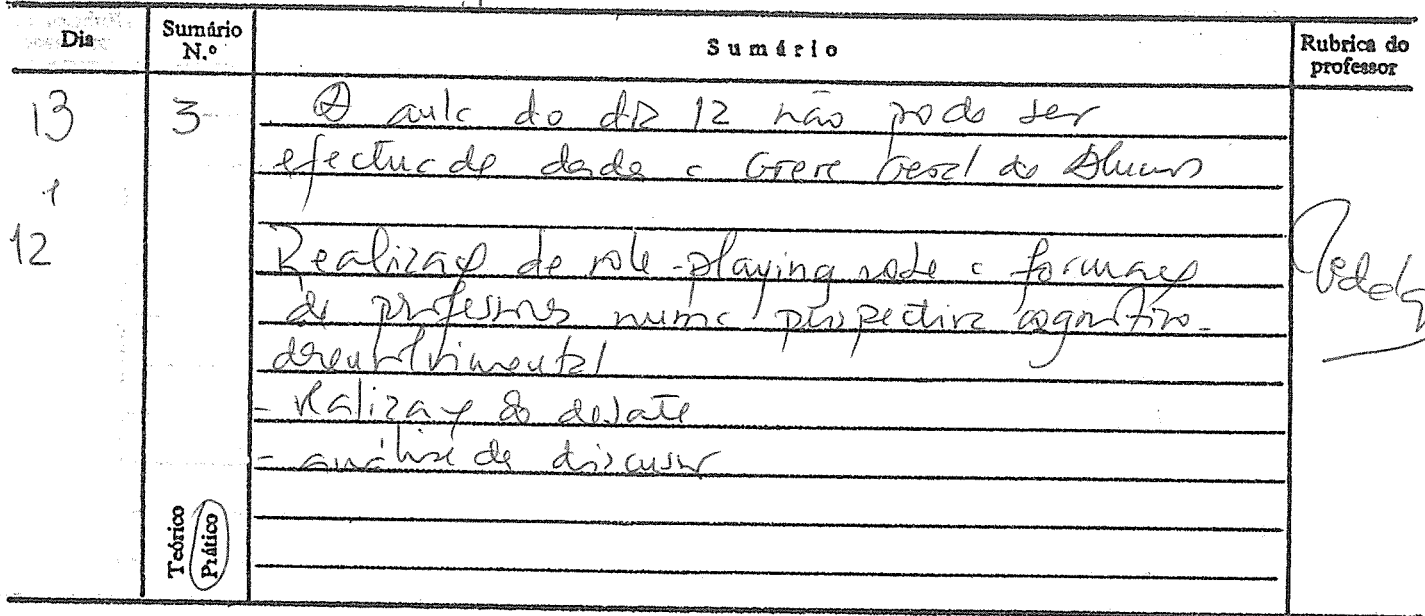 Dia
Sumário N.º
Sumário
Rubrica do professor
13
1
12
3
A aula do dia 12 não pode ser
efectuada dada a Greve Geral de Alunos
Realização de role-playing sobre a formação
de professores numa perspectiva cognitivo-
desenvolvimental
- Realização do debate
- análise da discussão
Teórico
Prático